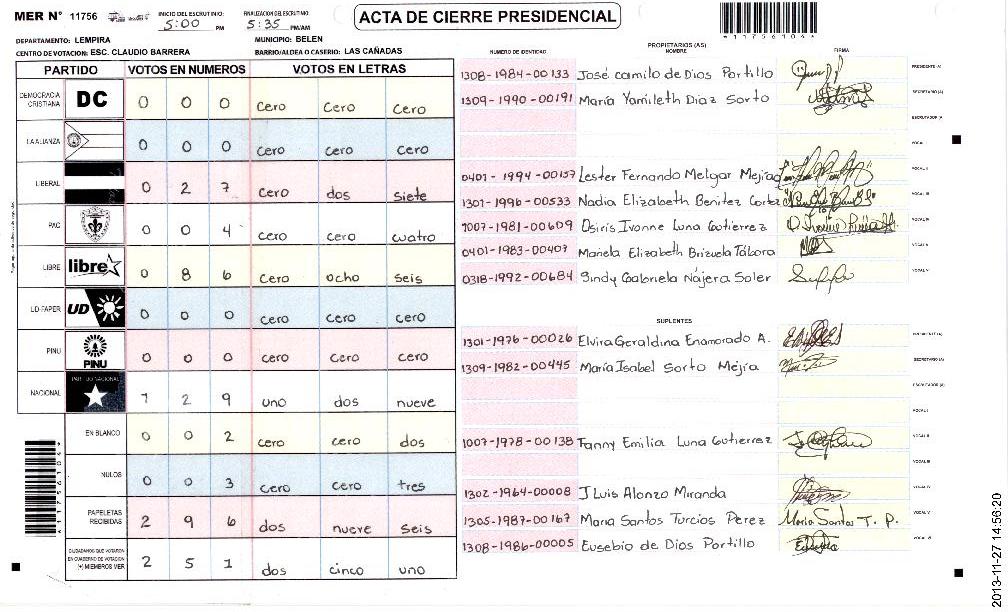 MER N° 11756
INICIO DEL ESCRUTINIO: 5:00 PM
FINALIZACION DEL ESCRUTINIO: 5:35 PM/AM
ACTA DE CIERRE PRESIDENCIAL
*11756104*
DEPARTAMENTO: LEMPIRA
MUNICIPIO: BELEN
CENTRO DE VOTACION: ESC. CLAUDIO BARRERA
BARRIO/ALDEA O CASERIO: LAS CAÑADAS
PARTIDO VOTOS EN NUMEROS VOTOS EN LETRAS
DEMOCRACIA CRISTIANA DC 0 0 0 cero cero cero
LA ALIANZA 0 0 0 cero cero cero
LIBERAL 0 2 7 cero dos siete
PAC 0 0 4 cero cero cuatro
LIBRE libre 0 8 6 cero ocho seis
UD-FAPER UD 0 0 0 cero cero cero
PINU PINU 0 0 0 cero cero cero
NACIONAL PARTIDO NACIONAL 1 2 9 uno dos nueve
EN BLANCO 0 0 2 cero cero dos
NULOS 0 0 3 cero cero tres
PAPELETAS RECIBIDAS 2 9 6 dos nueve seis
CIUDADANOS QUE VOTARON EN CUADERNO DE VOTACION (+) MIEMBROS MER 2 5 1 dos cinco uno
PROPIETARIOS (AS)
NUMERO DE IDENTIDAD NOMBRE FIRMA
1308-1984-00133 José camilo de Dios Portillo PRESIDENTE (A)
1309-1990-00191 María Yamileth Diaz Sorto SECRETARIO (A)
ESCRUTADOR (A)
VOCAL I
0401-1994-00157 Lester Fernando Melgar Mejía VOCAL II
1301-1996-00533 Nadia Elizabeth Benitez Cortez VOCAL III
1007-1981-00609 Osiris Ivonne Luna Gutierrez VOCAL IV
0401-1983-00407 Mariela Elizabeth Brizuela Tábora VOCAL V
0318-1992-00684 Sindy Gabriela Nájera Soler VOCAL VI
SUPLENTES
1301-1976-00026 Elvira Geraldina Enamorado A. PRESIDENTE (A)
1309-1982-00445 María Isabel Sorto Mejía SECRETARIO (A)
ESCRUTADOR (A)
VOCAL I
1007-1978-00138 Fanny Emilia Luna Gutierrez VOCAL II
VOCAL III
1302-1964-00008 J Luis Alonzo Miranda VOCAL IV
1305-1987-00167 Maria Santos Turcios Perez Maria Santos T. P. VOCAL V
1308-1986-00005 Eusebio de Dios Portillo VOCAL VI
*11756104*
2013-11-27 14:56:20